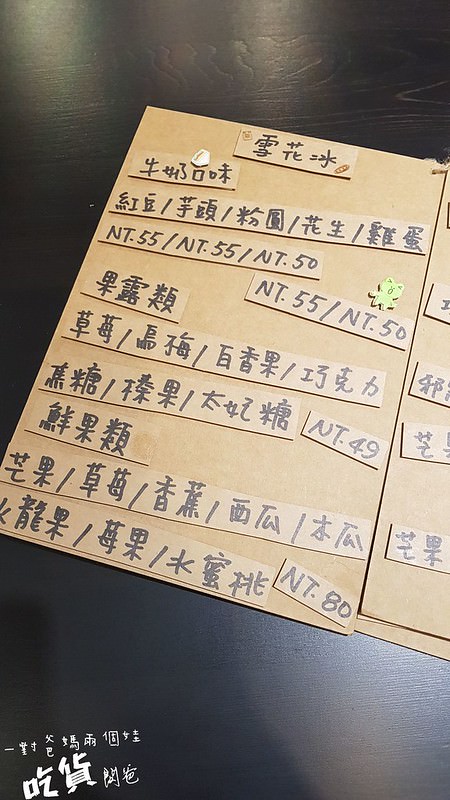 雪花冰
牛奶口味
紅豆/芋頭/粉圓/花生/雞蛋
NT.55/NT.55/NT.50
NT.55/NT.50
果露類
草莓/烏梅/百香果/巧克力
焦糖/榛果/太妃糖
NT.49
鮮果類
芒果/草莓/香蕉/西瓜/木瓜
火龍果/莓果/水蜜桃
NT.80
芒果
芒果
一對爸媽兩個娃
吃貨
闆爸